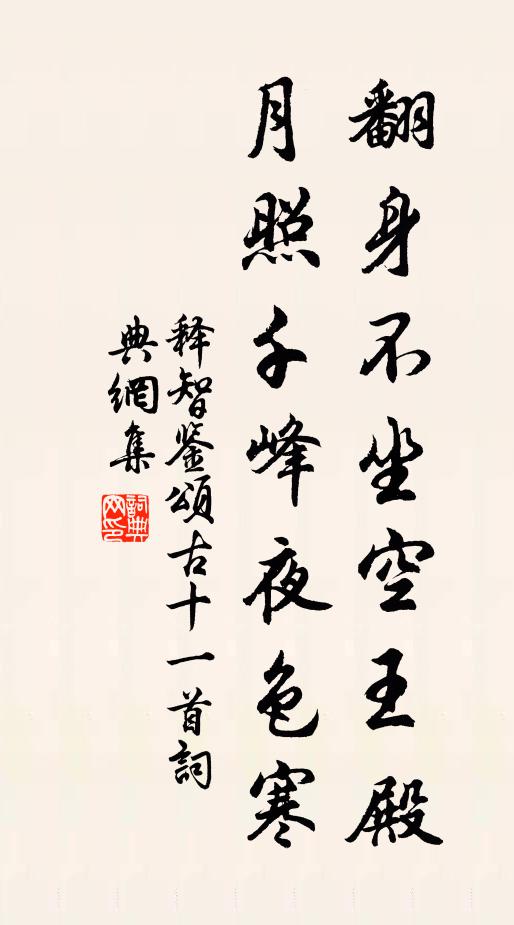 翻身不坐空王殿
月照千峰夜色寒
释智鉴頌古十一首詞
典網集
詞典
网印